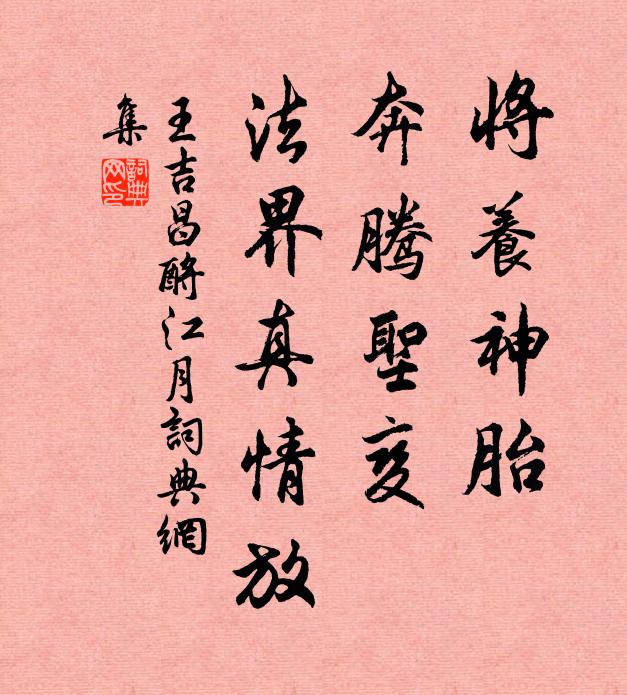 將養神胎
奔騰聖变
法界真情放
王吉昌酹江月詞典網
集
詞典網印